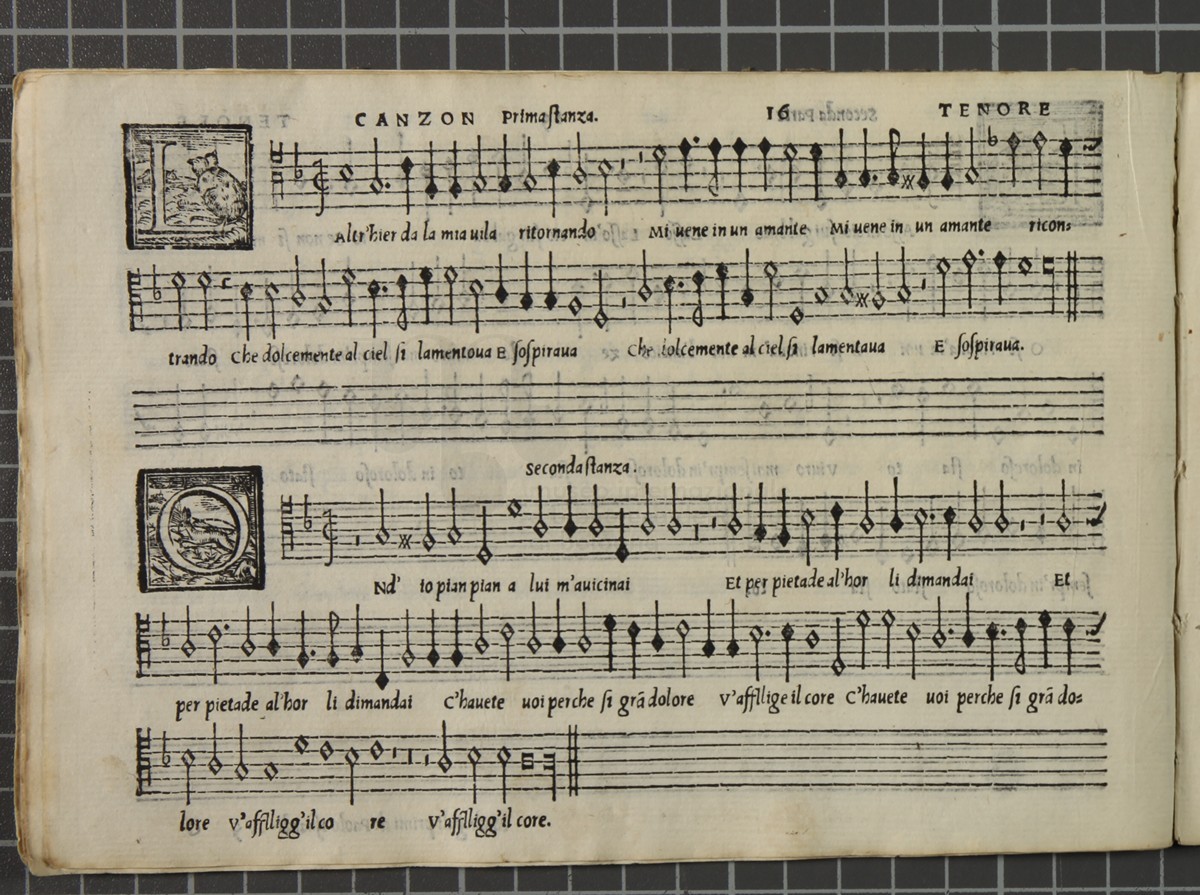 CANZON Prima stanza. 16 TENORE
L Altr'hier da la mia uila ritornando Mi uene in un amante Mi uene in un amante ricon=
trando Che dolcemente al ciel si lamentoua E sospiraua Che dolcemente al ciel si lamentaua E sospiraua.
Seconda stanza.
O Nd' io pian pian a lui m'auicinai Et per pietade al'hor li dimandai Et
per pietade al'hor li dimandai C'hauete uoi perche si grã dolore V'affllige il core C'hauete uoi perche si grã do=
lore v'affligg'il co re v'affligg'il core.